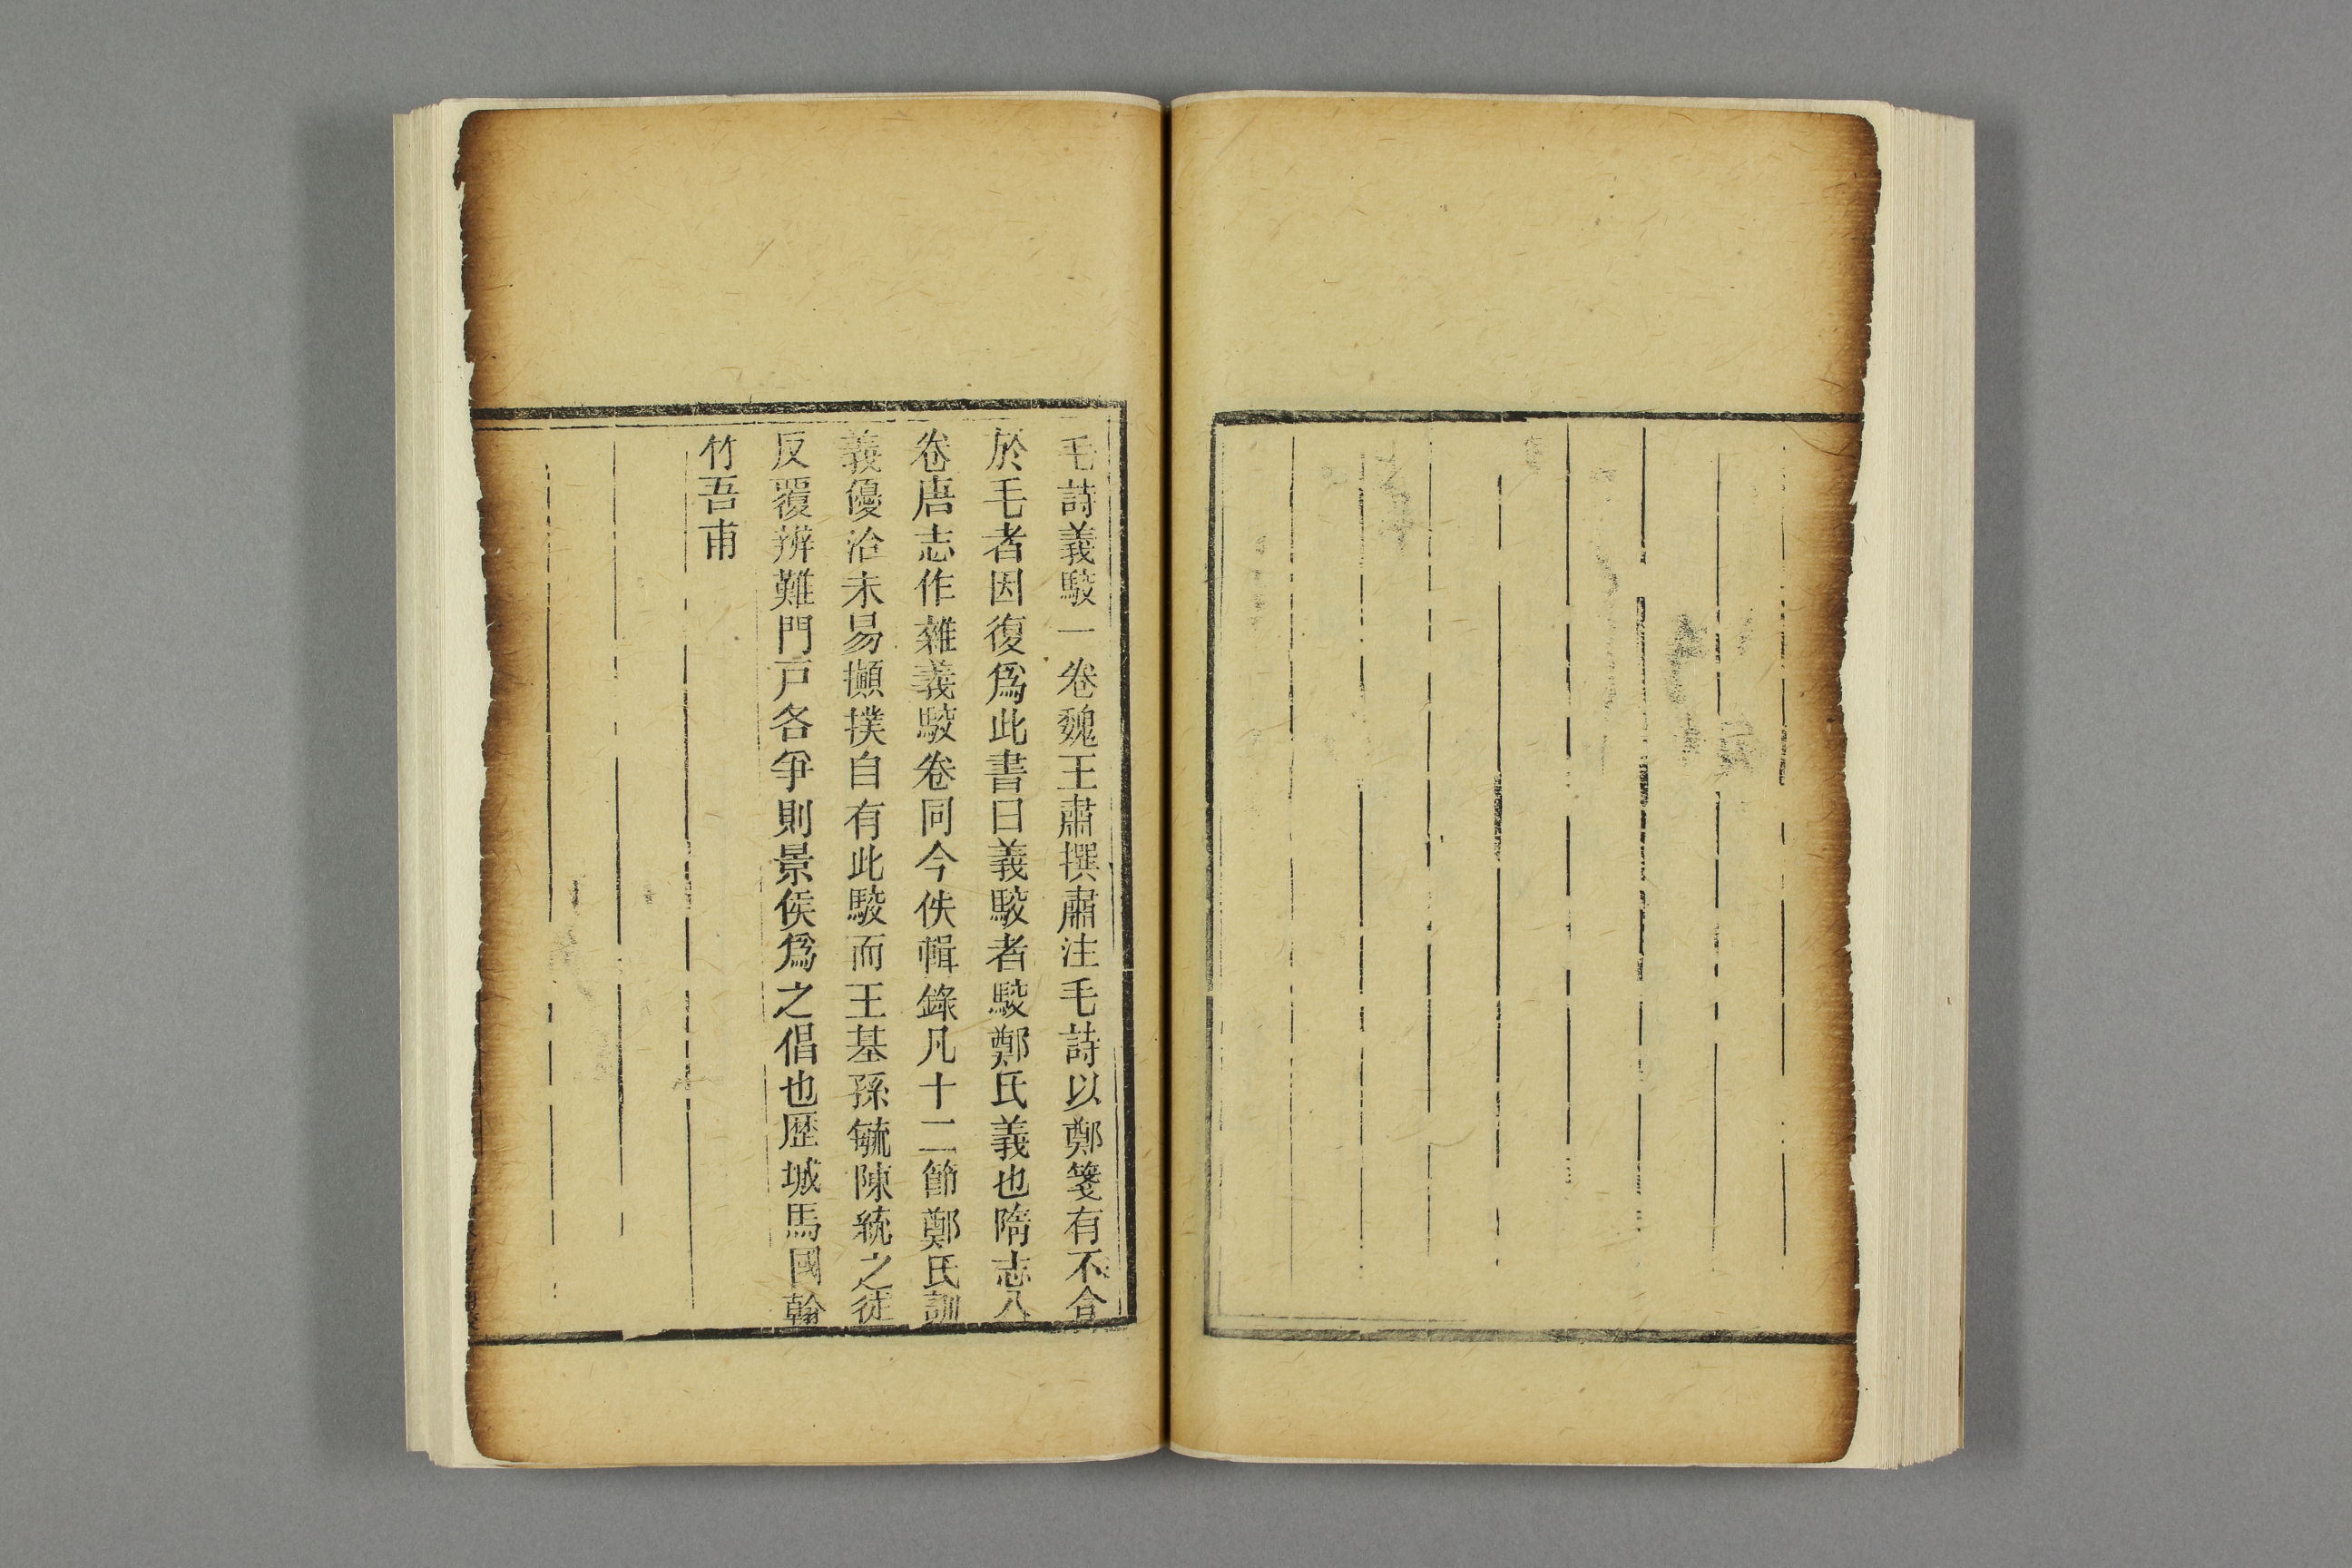 毛詩義駮一卷魏王肅撰肅注毛詩以鄭箋有不合
於毛者因復爲此書曰義駮者駮鄭氏義也隋志八
卷唐志作雜義駮卷同今佚輯錄凡十二節鄭氏訓
義優洽未易攧撲自有此駮而王基孫毓陳統之徒
反覆辨難門戸各爭則景侯爲之倡也歷城馬國翰
竹吾甫